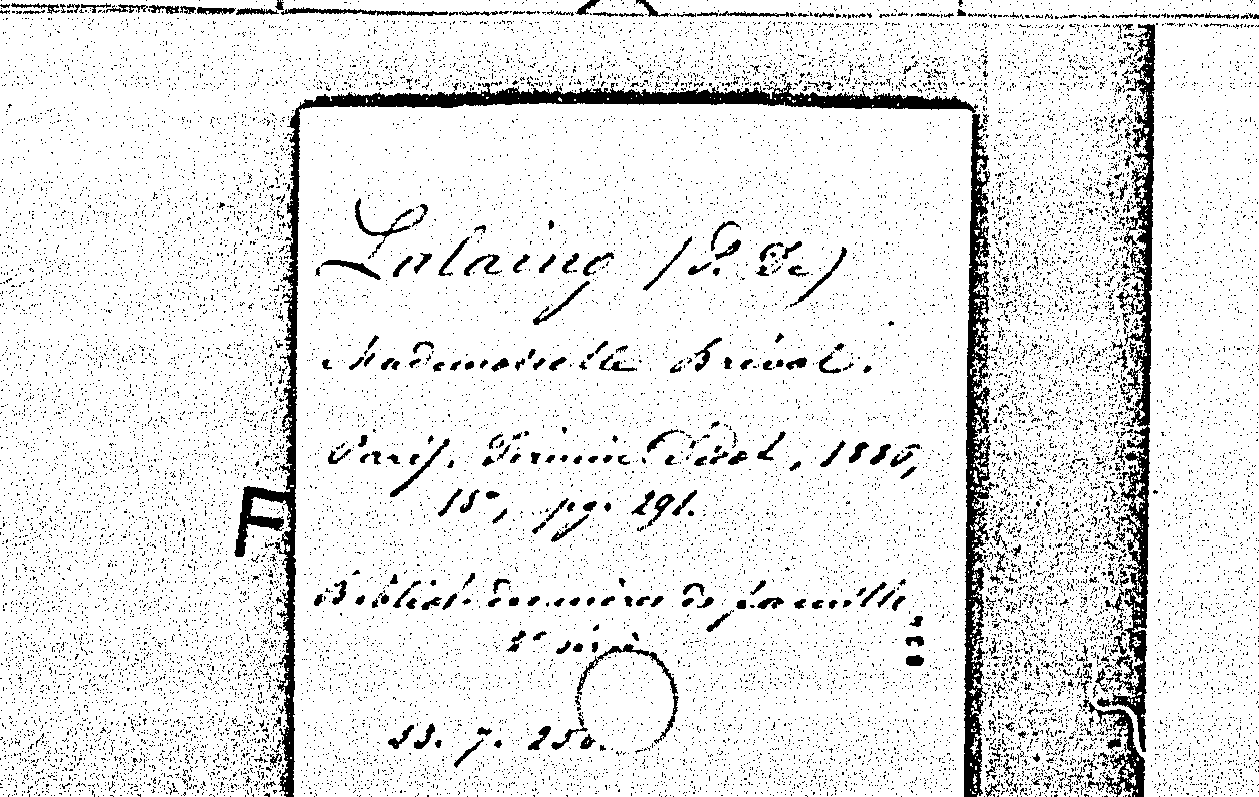 Lalaing (P. De)
Mademoiselle Bréval.
Paris, Firmin Didot, 1886,
18°, pg. 291.
F
Biblioth. des mères de famille,
2e série
53. 7. 250.